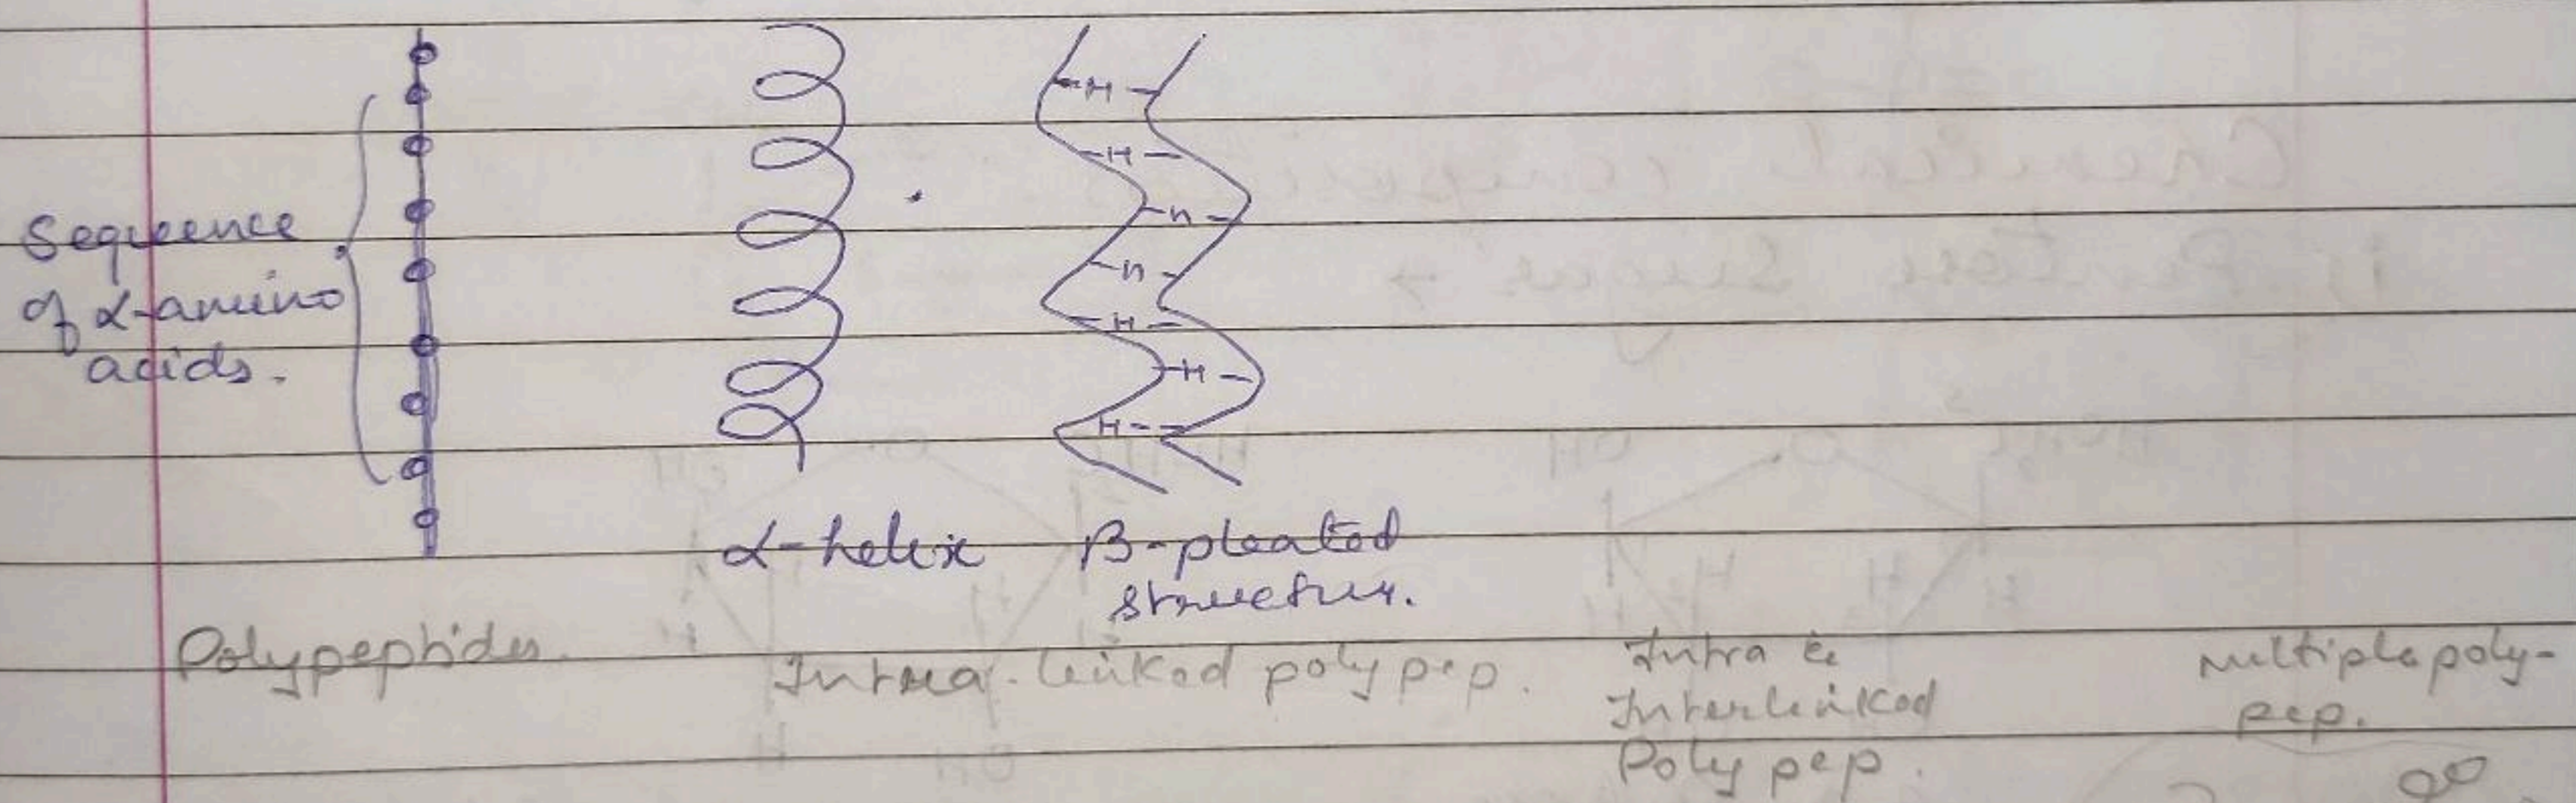 Sequence
of α-amino
acids.
-H-
-H-
-n-
-n-
-H-
-H-
H--
α-helix
β-pleated
structur.
Polypeptides.
Intra-linked polypep.
Intra &
Interlinked
Poly pep.
Multiple poly-
pep.